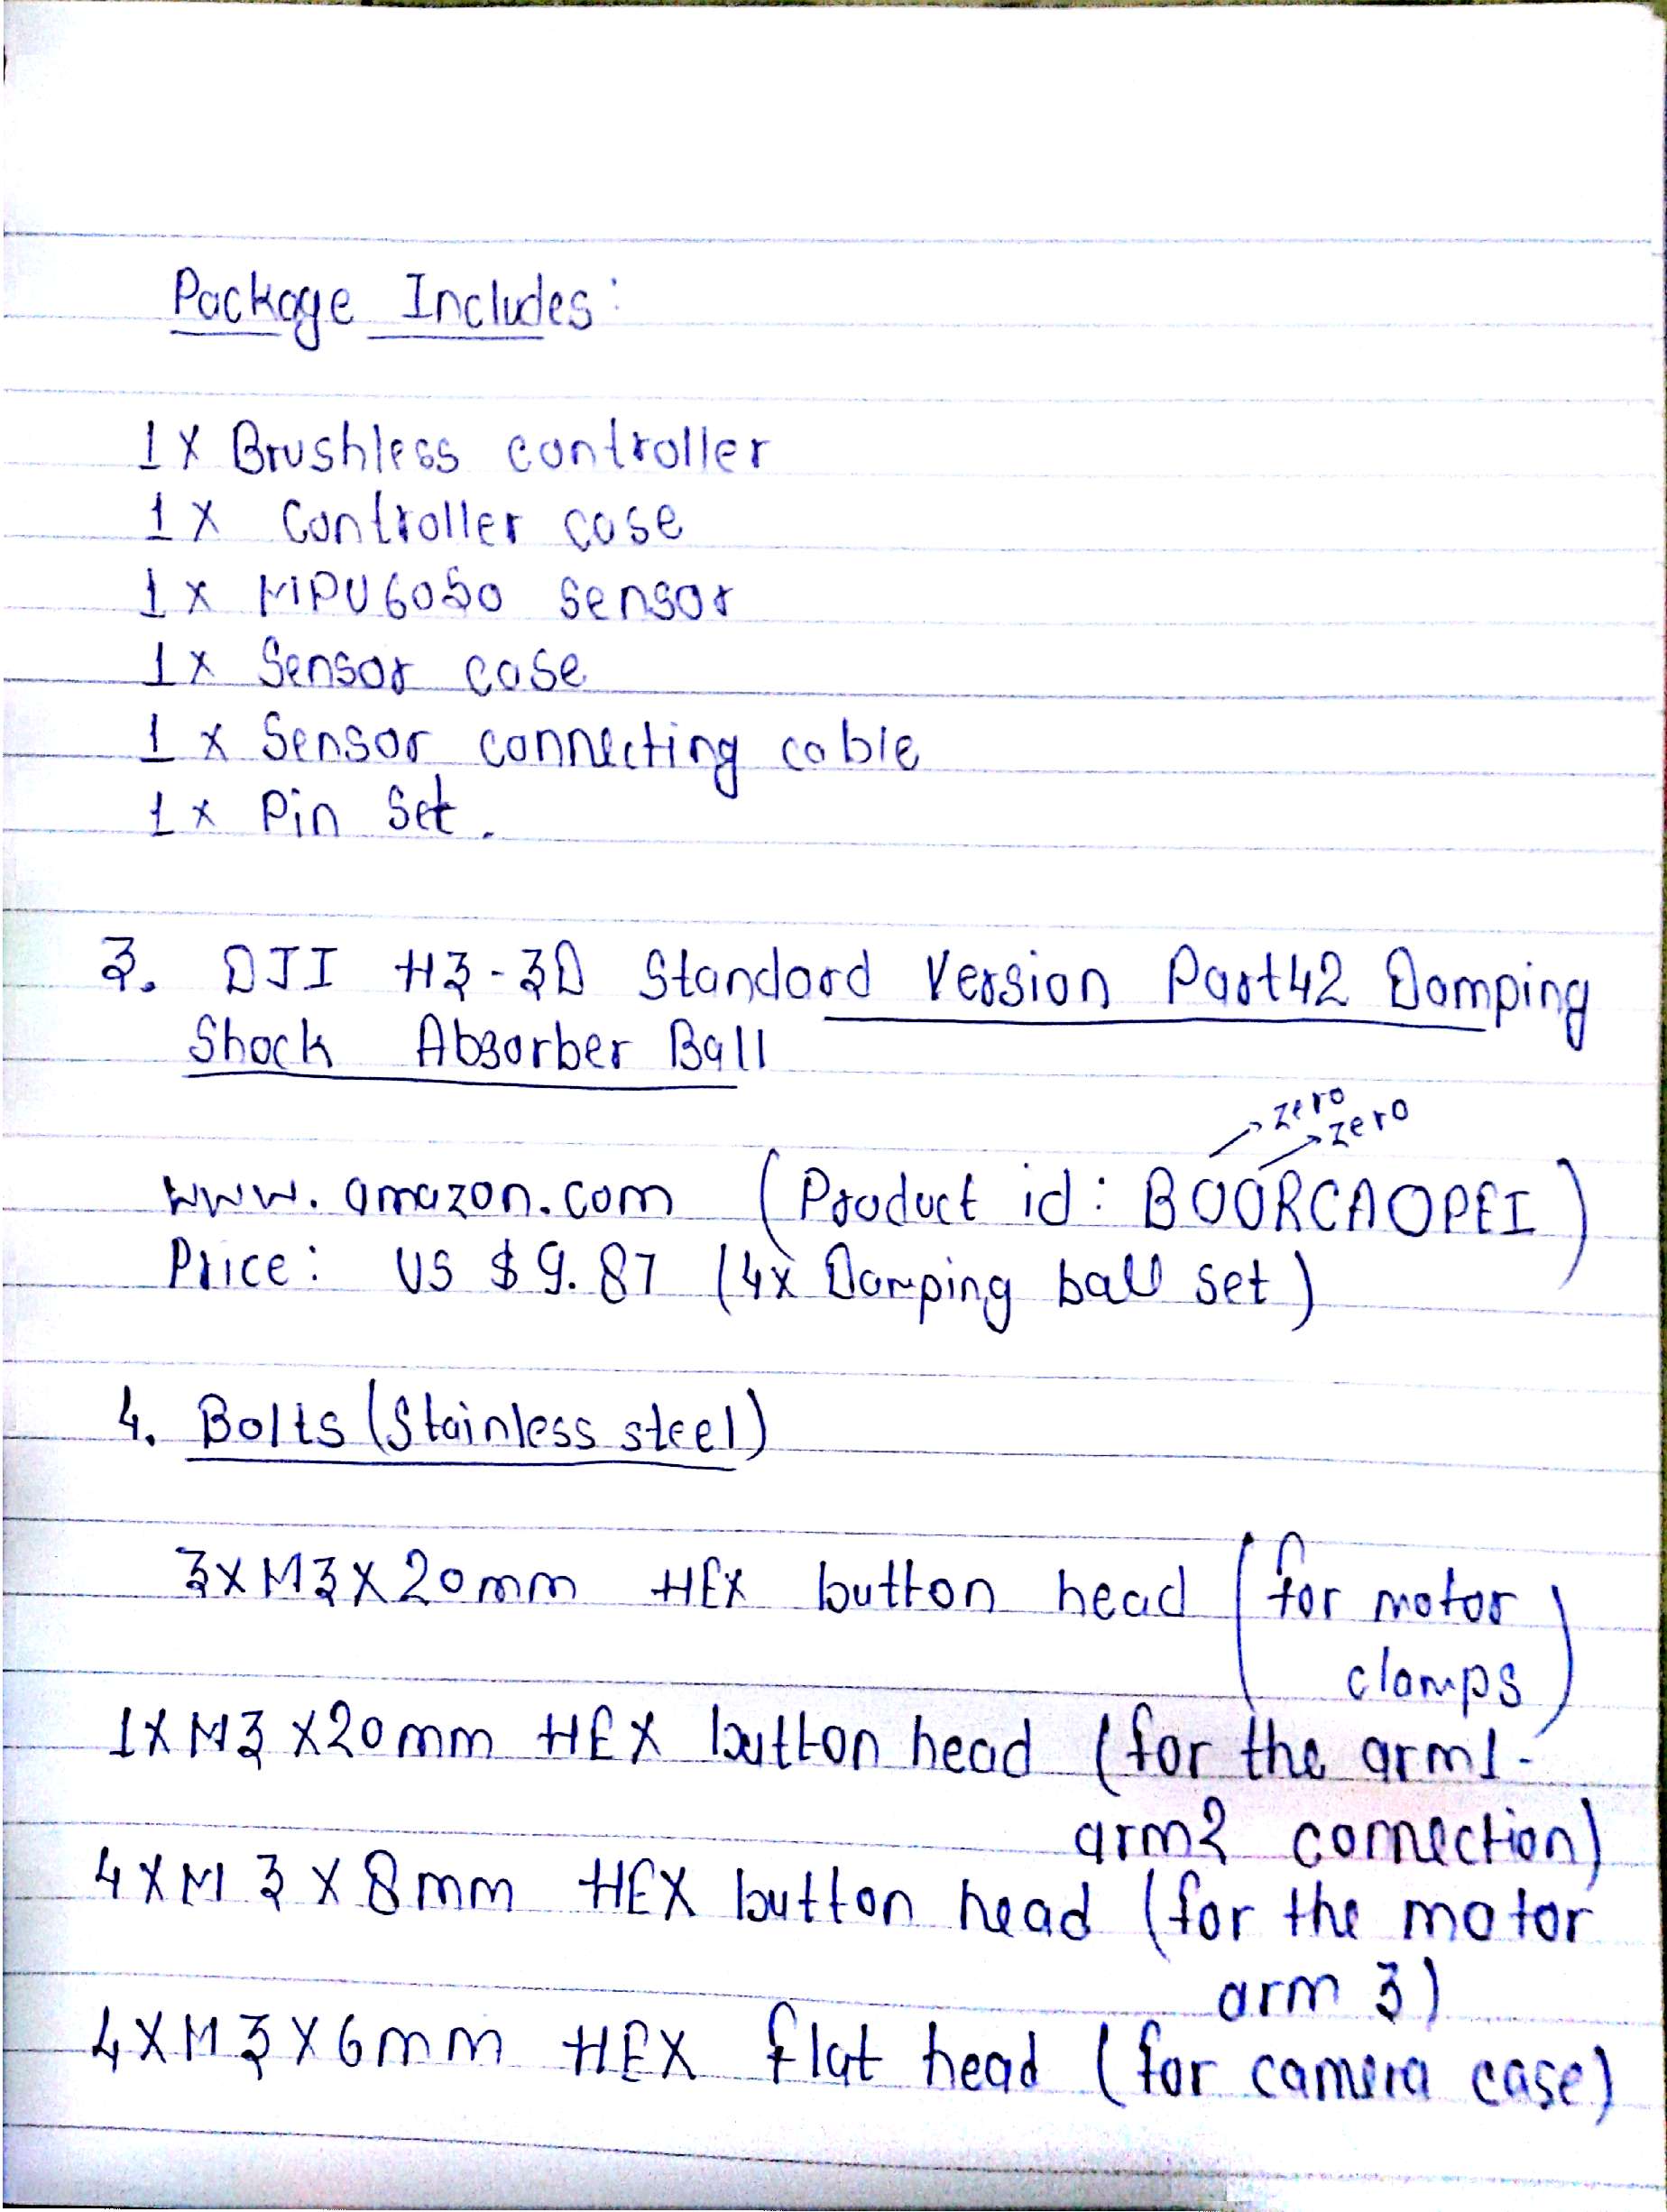 Package Includes:
1X Brushless controller
1X Controller case
1x MPU6050 sensor
1x Sensor case
1x Sensor connecting cable
1x Pin Set.
3. DJI H3-3D Standard Version Part42 Damping
Shock Absorber Ball
zero
zero
www.amazon.com (Product id: B00RCAOPEI)
Price: US $9.87 (4x Damping ball set)
4. Bolts (Stainless steel)
3XM3X20mm HEX button head (for motor
clamps)
1XM3X20mm HEX button head (for the arm1-
arm2 connection)
4XM3X8mm HEX button head (for the motor
arm 3)
4XM3X6mm HEX flat head (for camera case)